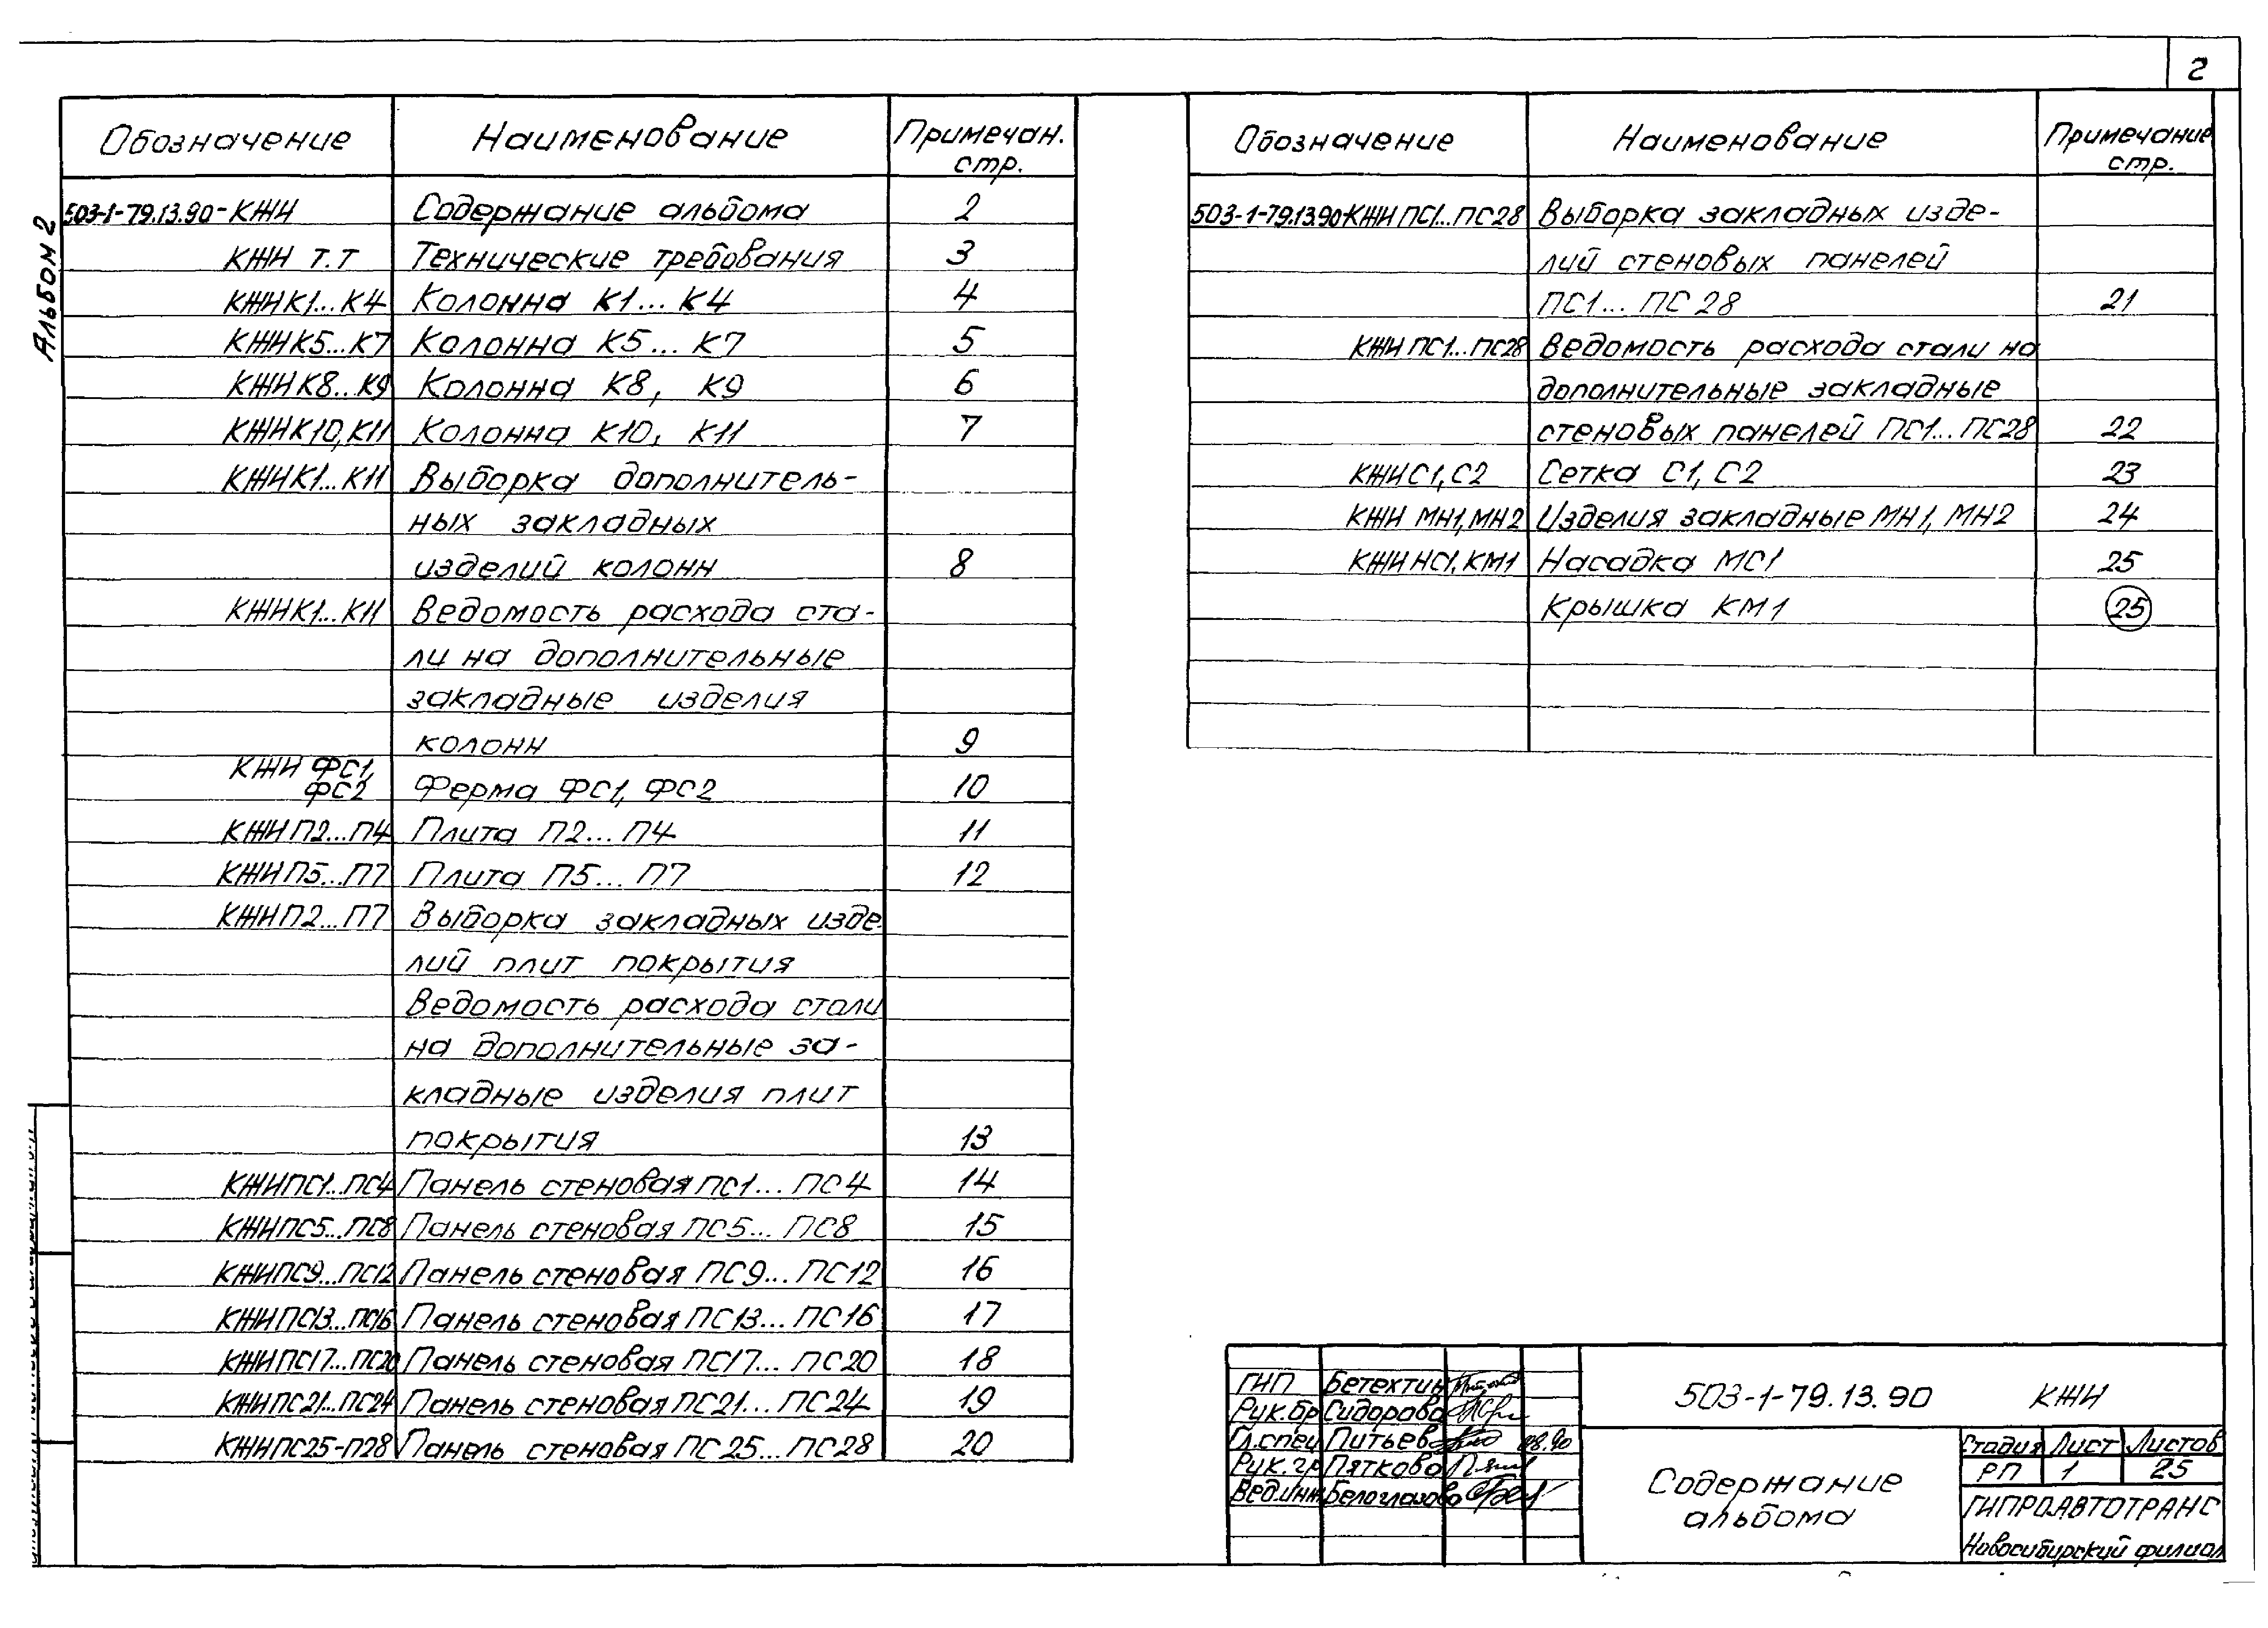 2
Альбом 2
Обозначение Наименование Примечан. стр.
503-1-79.13.90-КЖИ Содержание альбома 2
КЖИ Т.Т Технические требования 3
КЖИ К1...К4 Колонна К1...К4 4
КЖИ К5...К7 Колонна К5...К7 5
КЖИ К8...К9 Колонна К8, К9 6
КЖИ К10, К11 Колонна К10, К11 7
КЖИ К1...К11 Выборка дополнитель-
ных закладных
изделий колонн 8
КЖИ К1...К11 Ведомость расхода ста-
ли на дополнительные
закладные изделия
колонн 9
КЖИ ФС1,
ФС2 Ферма ФС1, ФС2 10
КЖИ П2...П4 Плита П2...П4 11
КЖИ П5...П7 Плита П5...П7 12
КЖИ П2...П7 Выборка закладных изде-
лий плит покрытия
Ведомость расхода стали
на дополнительные за-
кладные изделия плит
покрытия 13
КЖИ ПС1...ПС4 Панель стеновая ПС1...ПС4 14
КЖИ ПС5...ПС8 Панель стеновая ПС5...ПС8 15
КЖИ ПС9...ПС12 Панель стеновая ПС9...ПС12 16
КЖИ ПС13...ПС16 Панель стеновая ПС13...ПС16 17
КЖИ ПС17...ПС20 Панель стеновая ПС17...ПС20 18
КЖИ ПС21...ПС24 Панель стеновая ПС21...ПС24 19
КЖИ ПС25-П28 Панель стеновая ПС25...ПС28 20
Обозначение Наименование Примечание стр.
503-1-79.13.90-КЖИ ПС1...ПС28 Выборка закладных изде-
лий стеновых панелей
ПС1...ПС28 21
КЖИ ПС1...ПС28 Ведомость расхода стали на
дополнительные закладные
стеновых панелей ПС1...ПС28 22
КЖИ С1, С2 Сетка С1, С2 23
КЖИ МН1, МН2 Изделия закладные МН1, МН2 24
КЖИ НС1, КМ1 Насадка МС1 25
Крышка КМ1 25
ГИП Бетехтин
Рук.бр Сидорова
Гл.спец Питьев 08.90
Рук.гр Пяткова
Вед.инж Белоглазова
503-1-79.13.90 КЖИ
Содержание
альбома
Стадия Лист Листов
РП 1 25
ГИПРОАВТОТРАНС
Новосибирский филиал